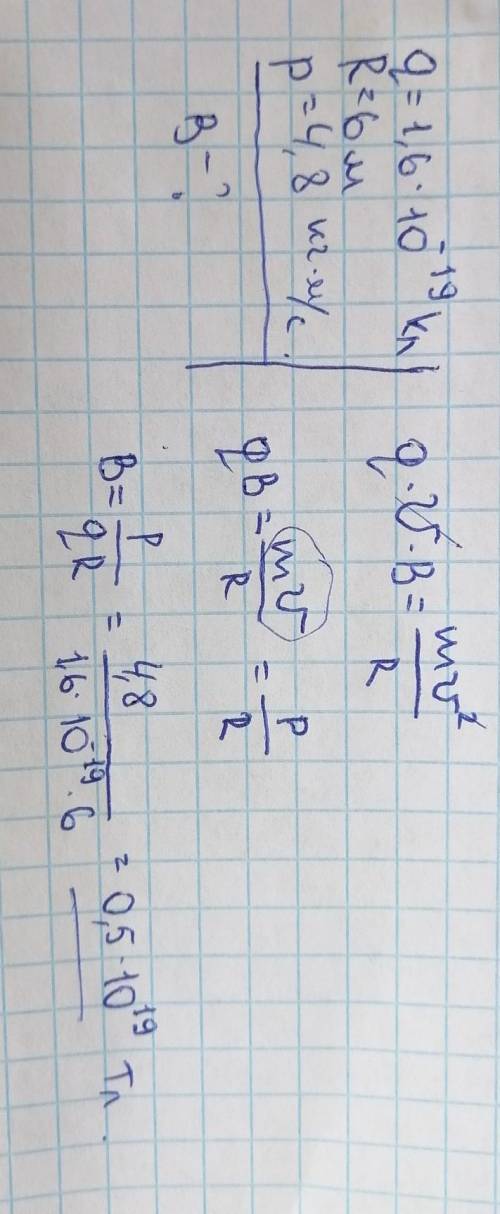 q = 1,6 · 10⁻¹⁹ Кл
R = 6 м
p = 4,8 кг·м/с.
B - ?
q · v · B = mv²/R
qB = mv/R = p/R
B = p/qR = 4,8/1,6 · 10⁻¹⁹ · 6 = 0,5 · 10¹⁹ Тл.